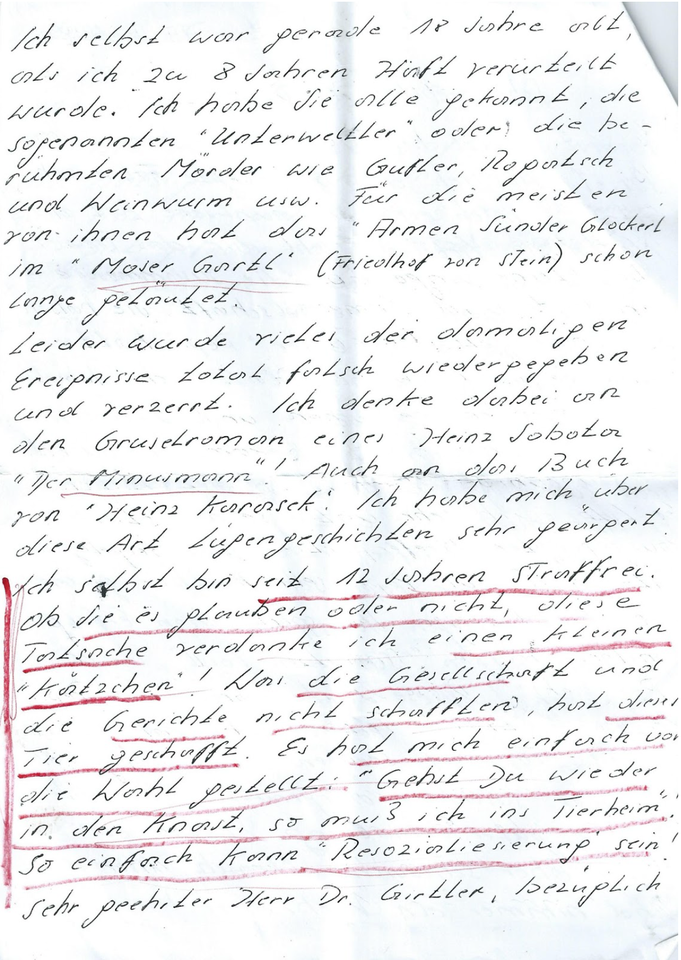 Ich selbst war gerade 18 Jahre alt,
als ich zu 8 Jahren Haft verurteilt
wurde. Ich habe sie alle gekannt, die
sogenannten "Unterweltler" oder die be-
rühmten Mörder wie Gufler, Rogatsch
und Weinwurm usw. Für die meisten
von ihnen hat das "Armen Sünder Glöckerl
im "Moser Gartl" (Friedhof von Stein) schon
lange geläutet.
Leider wurde vieles der damaligen
Ereignisse total falsch wiedergegeben
und verzerrt. Ich denke dabei an
den Gruselroman eines Heinz Sobota
"Der Minusmann"! Auch an das Buch
von "Heinz Karasek". Ich habe mich über
diese Art Lügengeschichten sehr geärgert.
Ich selbst bin seit 12 Jahren straffrei.
Ob sie es glauben oder nicht, diese
Tatsache verdanke ich einen kleinen
"Kätzchen"! Was die Gesellschaft und
die Gerichte nicht schafften, hat dieses
Tier geschafft. Es hat mich einfach vor
die Wahl gestellt: "Gehst Du wieder
in den Knast, so muß ich ins Tierheim"!
So einfach kann "Resozialiesierung" sein!
Sehr geehrter Herr Dr. Girtler, bezüglich